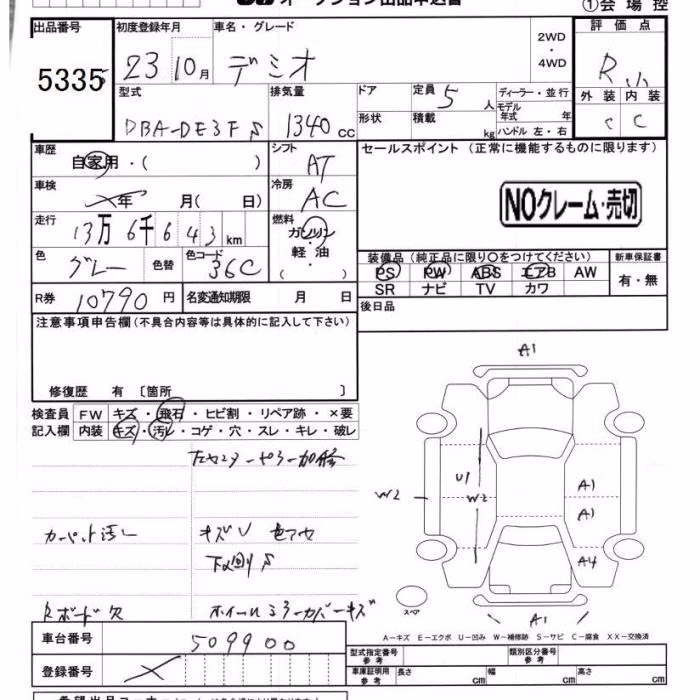 オークション出品申込書 ①会場控
出品番号 初度登録年月 車名・グレード 2WD・4WD 評価点
5335 23 10月 デミオ R
外装 内装
型式 排気量 ドア 定員 5人 ディーラー・並行
モデル年式 年
DBA-DE3FS 1340cc 形状 積載 kg ハンドル 左・右 C C
車歴 自家用・( ) シフト AT セールスポイント (正常に機能するものに限ります)
車検 年 月( 日) 冷房 AC
NOクレーム・売切
走行 13万6千643km 燃料 ガソリン・軽油・( )
色 グレー 色替 色コード 36C 装備品(純正品に限り〇をつけてください) 新車保証書
PS PW ABS エアB AW 有・無
SR ナビ TV カワ
R券 10790円 名変通知期限 月 日 後日品
注意事項申告欄(不具合内容等は具体的に記入して下さい)
修復歴 有 〔箇所 〕
検査員 FW キズ・飛石・ヒビ割・リペア跡・×要
記入欄 内装 キズ・汚レ・コゲ・穴・スレ・キレ・破レ
A1
U1 W2 W2 A1
A1
カーペット汚レ キズU 色アセ
下回りS A4
Rボード欠 ホイールミラーカバーキズ
スペア A1
車台番号 509900
A-キズ E-エクボ U-凹み W-補修跡 S-サビ C-腐食 XX-交換済
登録番号
型式指定番号 参考 類別区分番号 参考
車庫証明用 参考 長さ cm 幅 cm 高さ cm